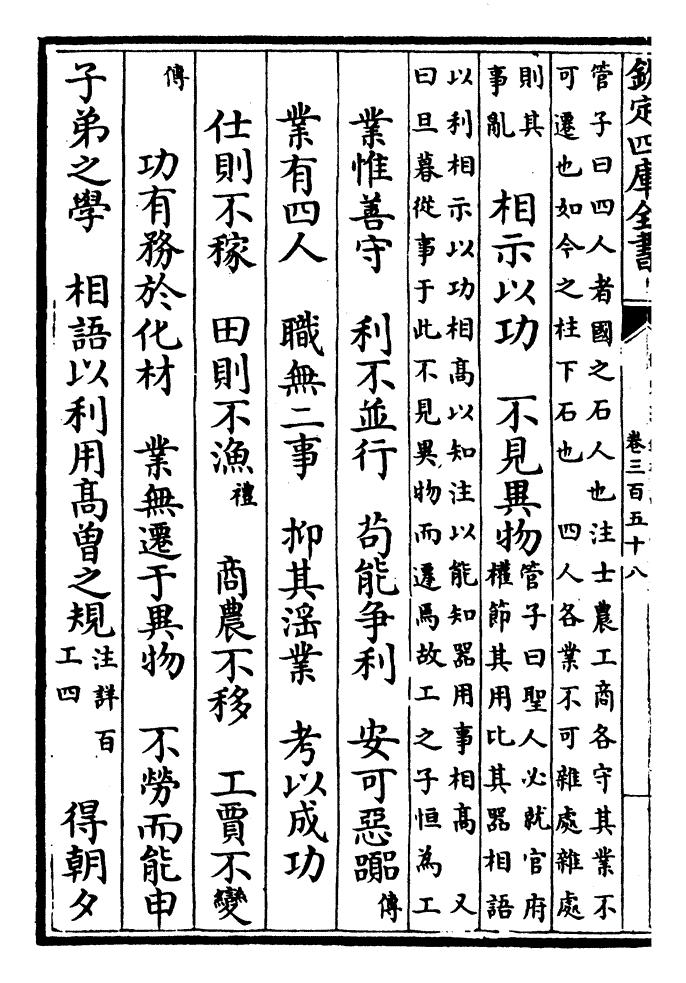 欽定四庫全書
卷三百五十八
管子曰四人者國之石人也注士農工商各守其業不
可遷也如今之柱下石也　四人各業不可雜處雜處
則其
事亂
相示以功　不見異物
管子曰聖人必就官府
權節其用比其器相語
以利相示以功相髙以知注以能知器用事相髙　又
曰旦暮從事于此不見異物而遷焉故工之子恒為工
業惟善守　利不並行　苟能争利　安可惡囂傳
業有四人　職無二事　抑其滛業　考以成功
仕則不稼　田則不漁禮　商農不移　工賈不變
傳　功有務於化材　業無遷于異物　不勞而能申
子弟之學　相語以利用髙曽之規
注詳百
工四
得朝夕